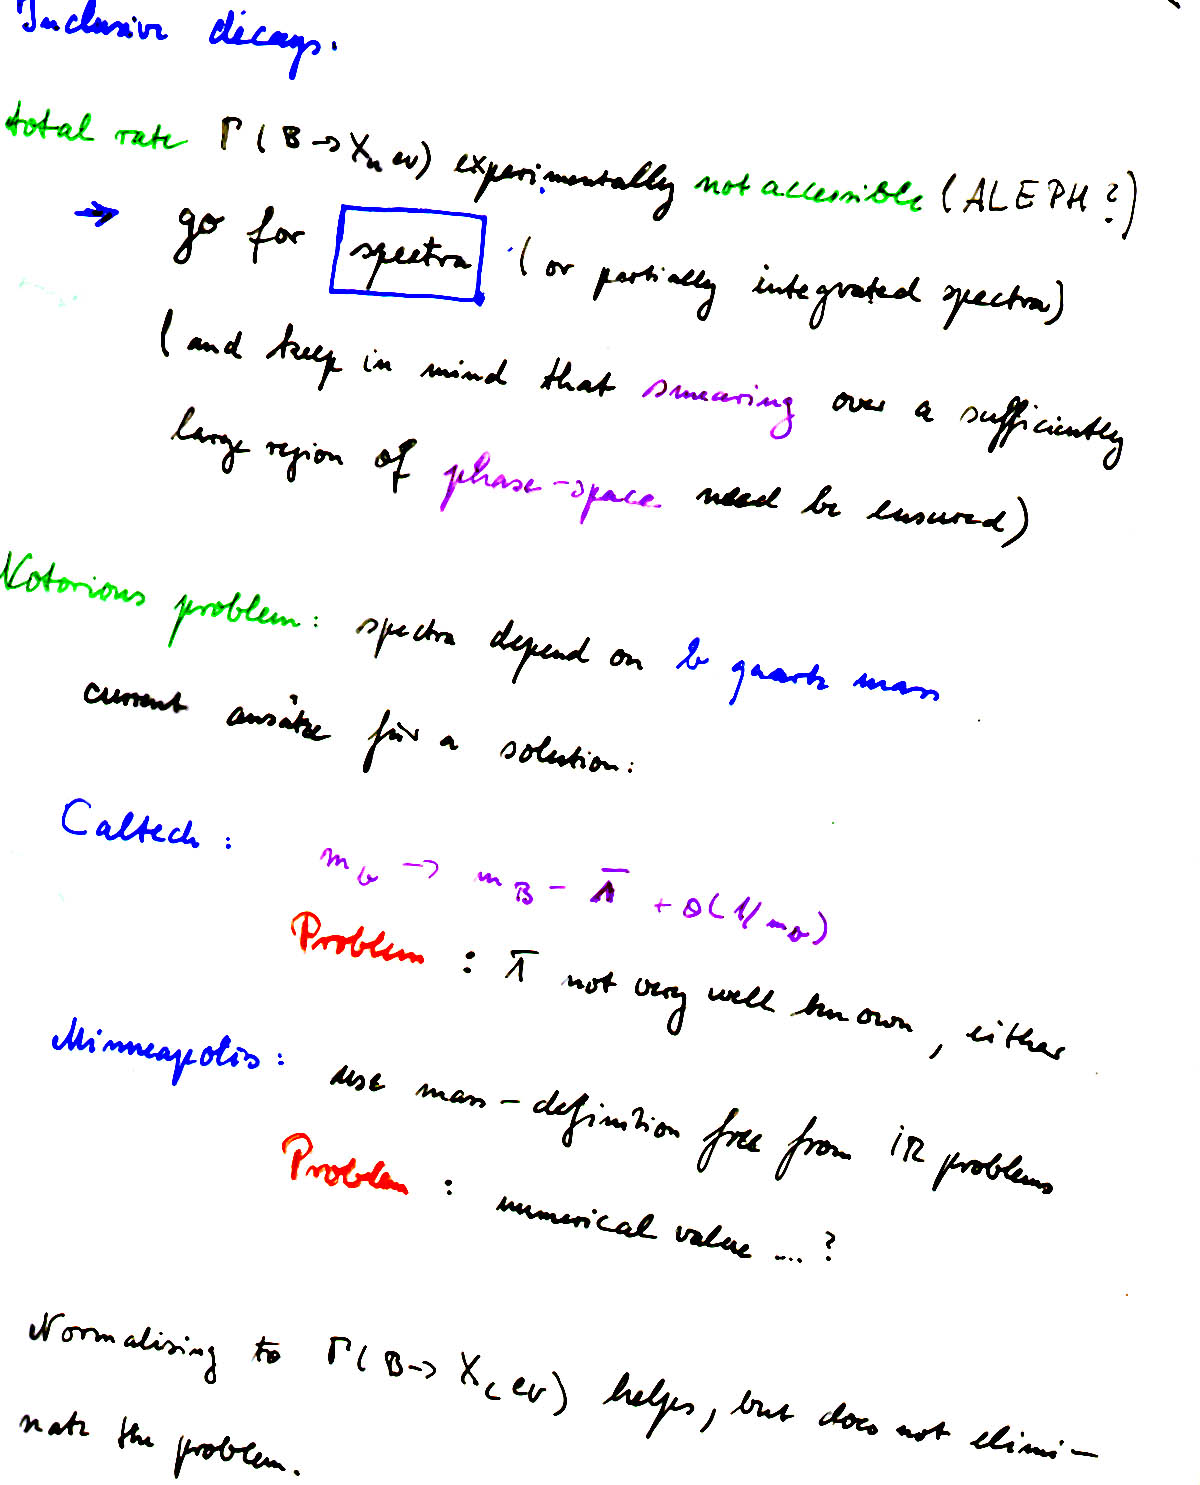 Inclusive decays.
total rate Γ(B→X_u eν) experimentally not accessible (ALEPH?)
→ go for spectra (or partially integrated spectra)
(and keep in mind that smearing over a sufficiently
large region of phase-space need be ensured)
Notorious problem: spectra depend on b quark mass
current ansätze für a solution:
Caltech: m_b → m_B - Λ̄ + O(1/m_b)
Problem: Λ̄ not very well known, either
Minneapolis: use mass-definition free from IR problems
Problem: numerical value ....?
Normalising to Γ(B→X_c eν) helps, but does not elimi-
nate the problem.